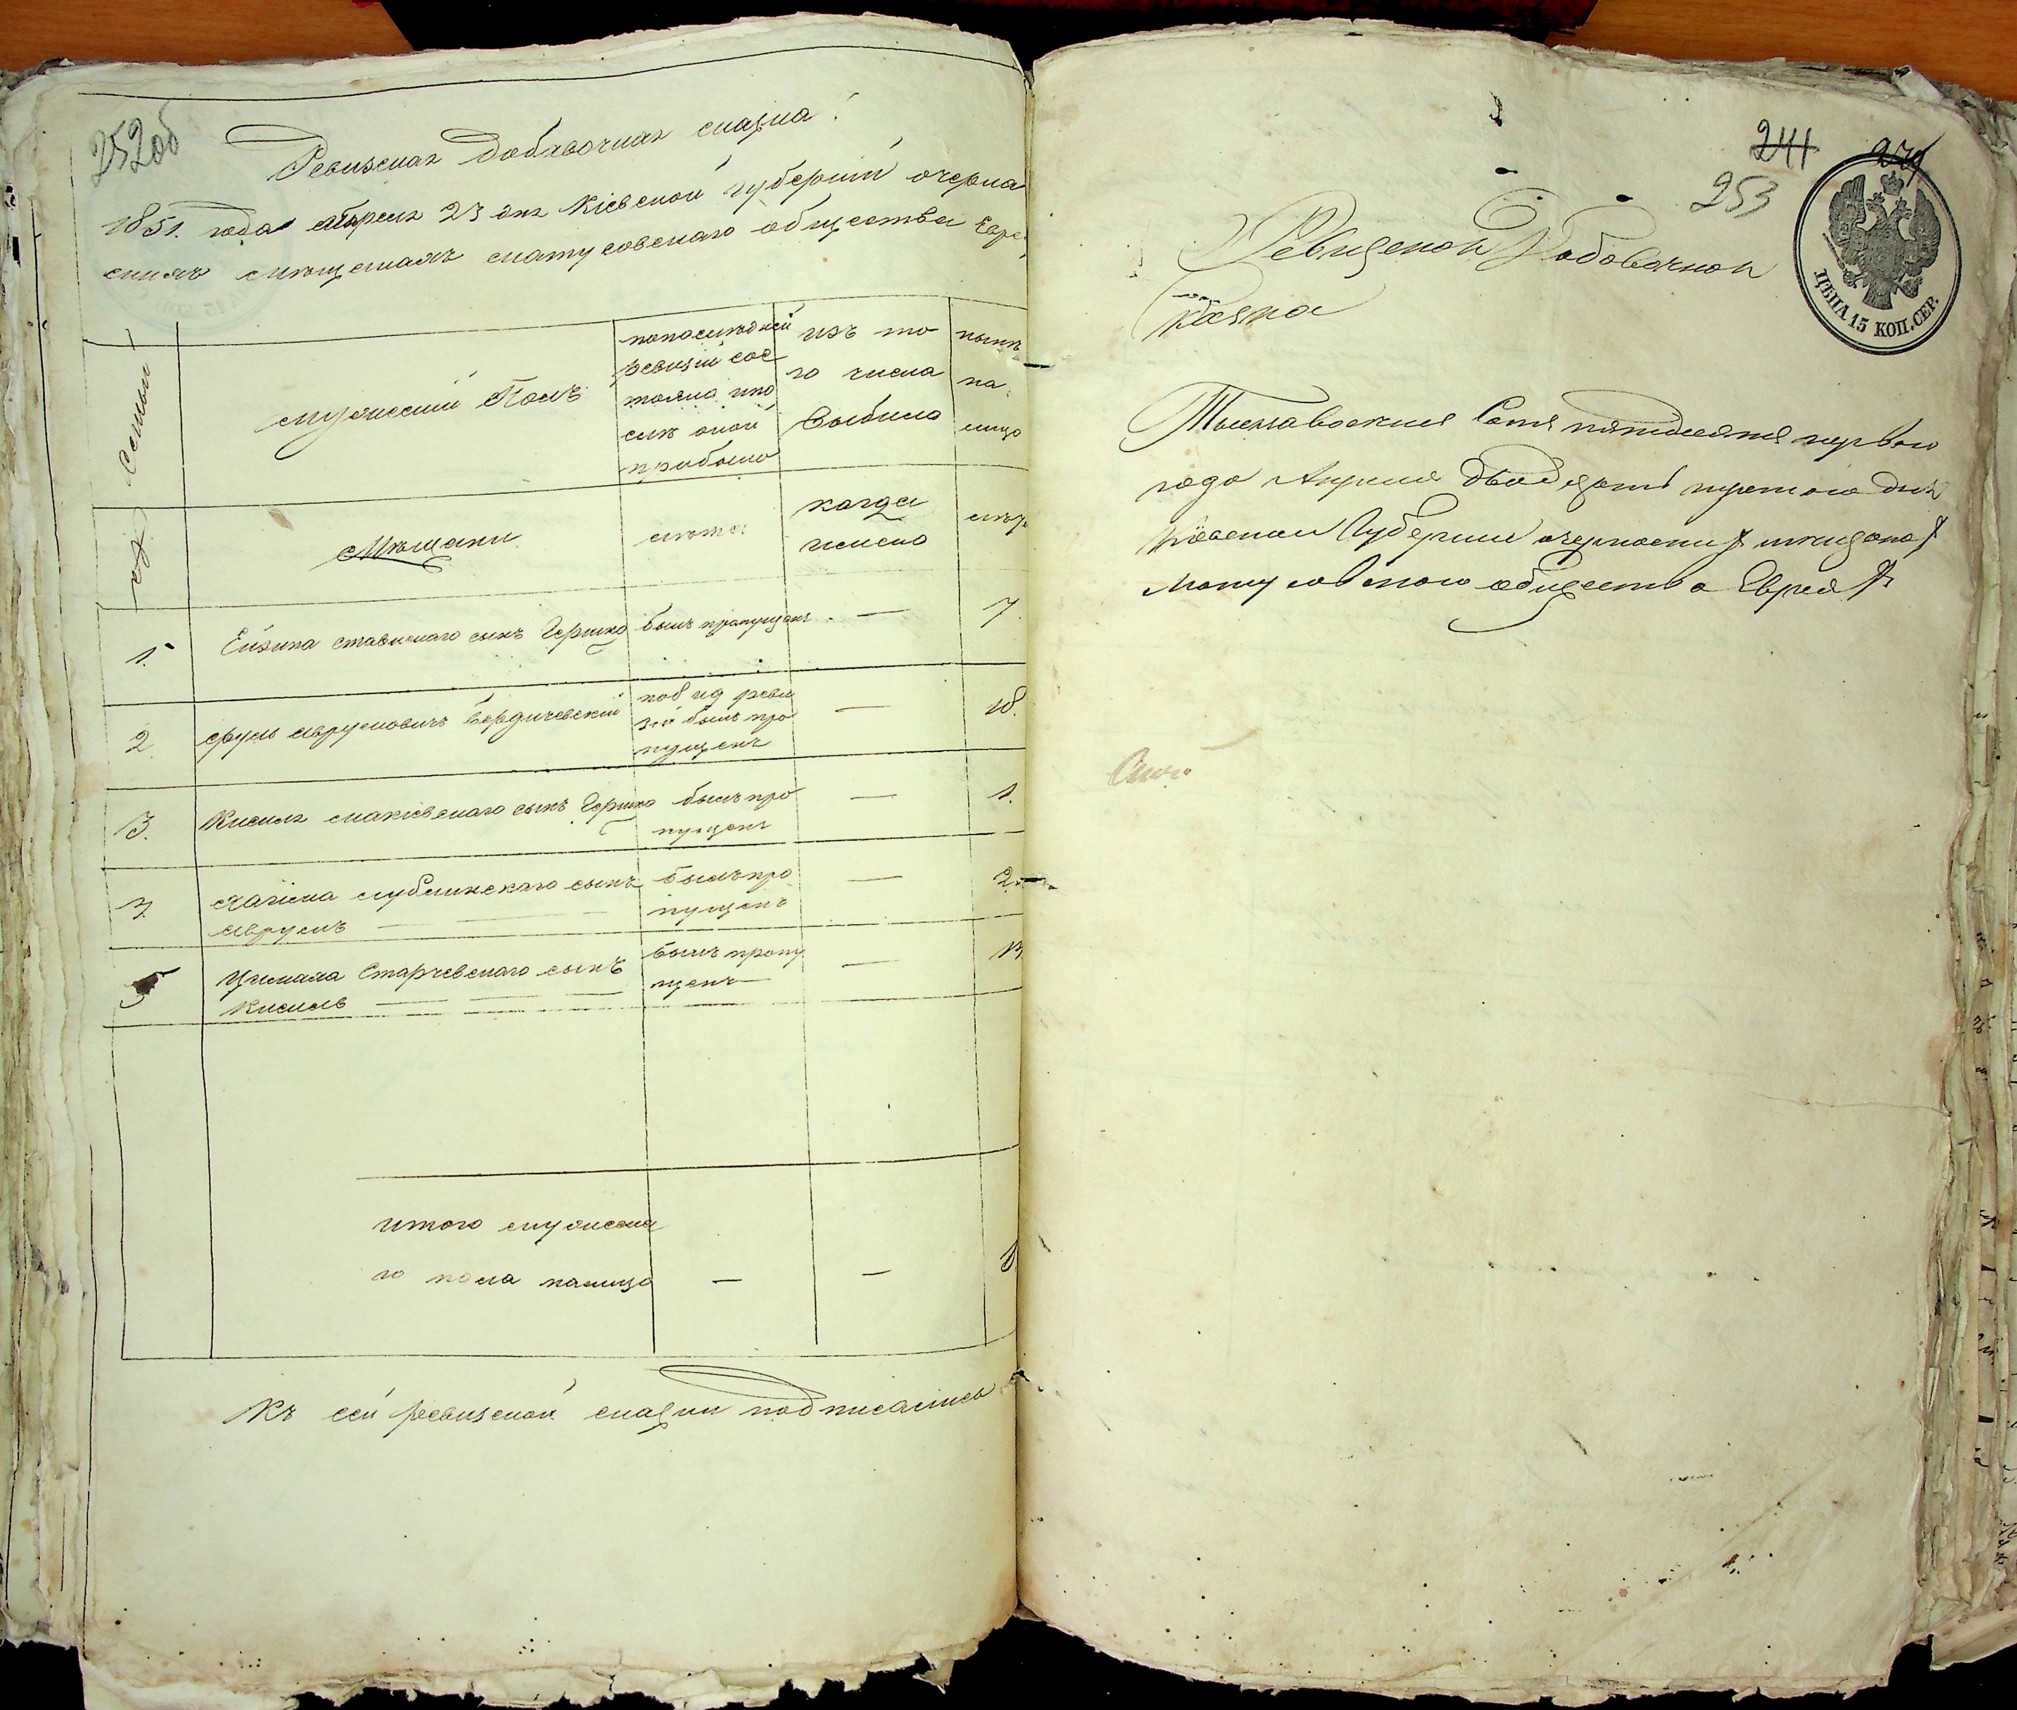 252об
Ревизская добавочная сказка
1851. года апреля 23 дня Кіевской губерніи
скимъ мещанамъ матусовскаго общества Евре
Семьи
мужескій Полъ
попоследней
ревизіи сос
тояло ипо
сле оной
прибыло
изъ то
го числа
выбыло
ныне
на
лицо
Мещани
лета
когда
имено
лета
1. Ейзика ставискаго сынъ Гершко былъ пропущенъ — 7.
2. сруль аврумовичъ бердичевскій
пов ид реви
зіи былъ про
пущенъ
— 18.
3. Кисиля макіевскаго сынъ Гершко былъ про
пущенъ
— 1.
3. сынъ
аврумъ
былъ про
пущенъ
— 2
5 Старчевскаго сынъ
Кисиль
былъ пропу
щенъ
— 13
итого мужеска
го пола налицо — —
Къ сей ревизской сказки подписались
241 279
253
ЦѢНА 15 КОП. СЕР.
Ревизская Добовочная
Казка
Тысяча восемьсотъ пятдесятя первого
года Апреля двадцять третого дня
Кіевской Губерніи
Матусовского общества Еврея